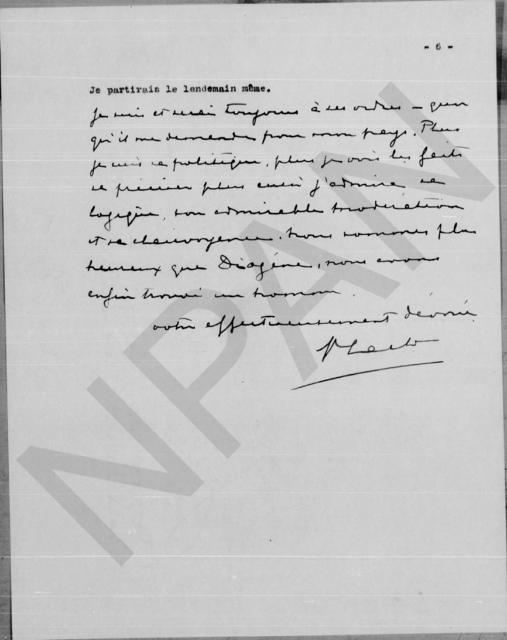 - 6 -
Je partirais le lendemain même.
Je suis et serai toujours à ses ordres - quoi
qu'il me demande pour mon pays. Plus
je suis sa politique, plus je vois les faits
se préciser plus aussi j'admire sa
logique, son admirable modération
et sa clairvoyance. Nous sommes plus
heureux que Diogène, nous avons
enfin trouvé un homme.
votre affectueusement dévoué.
NPAN